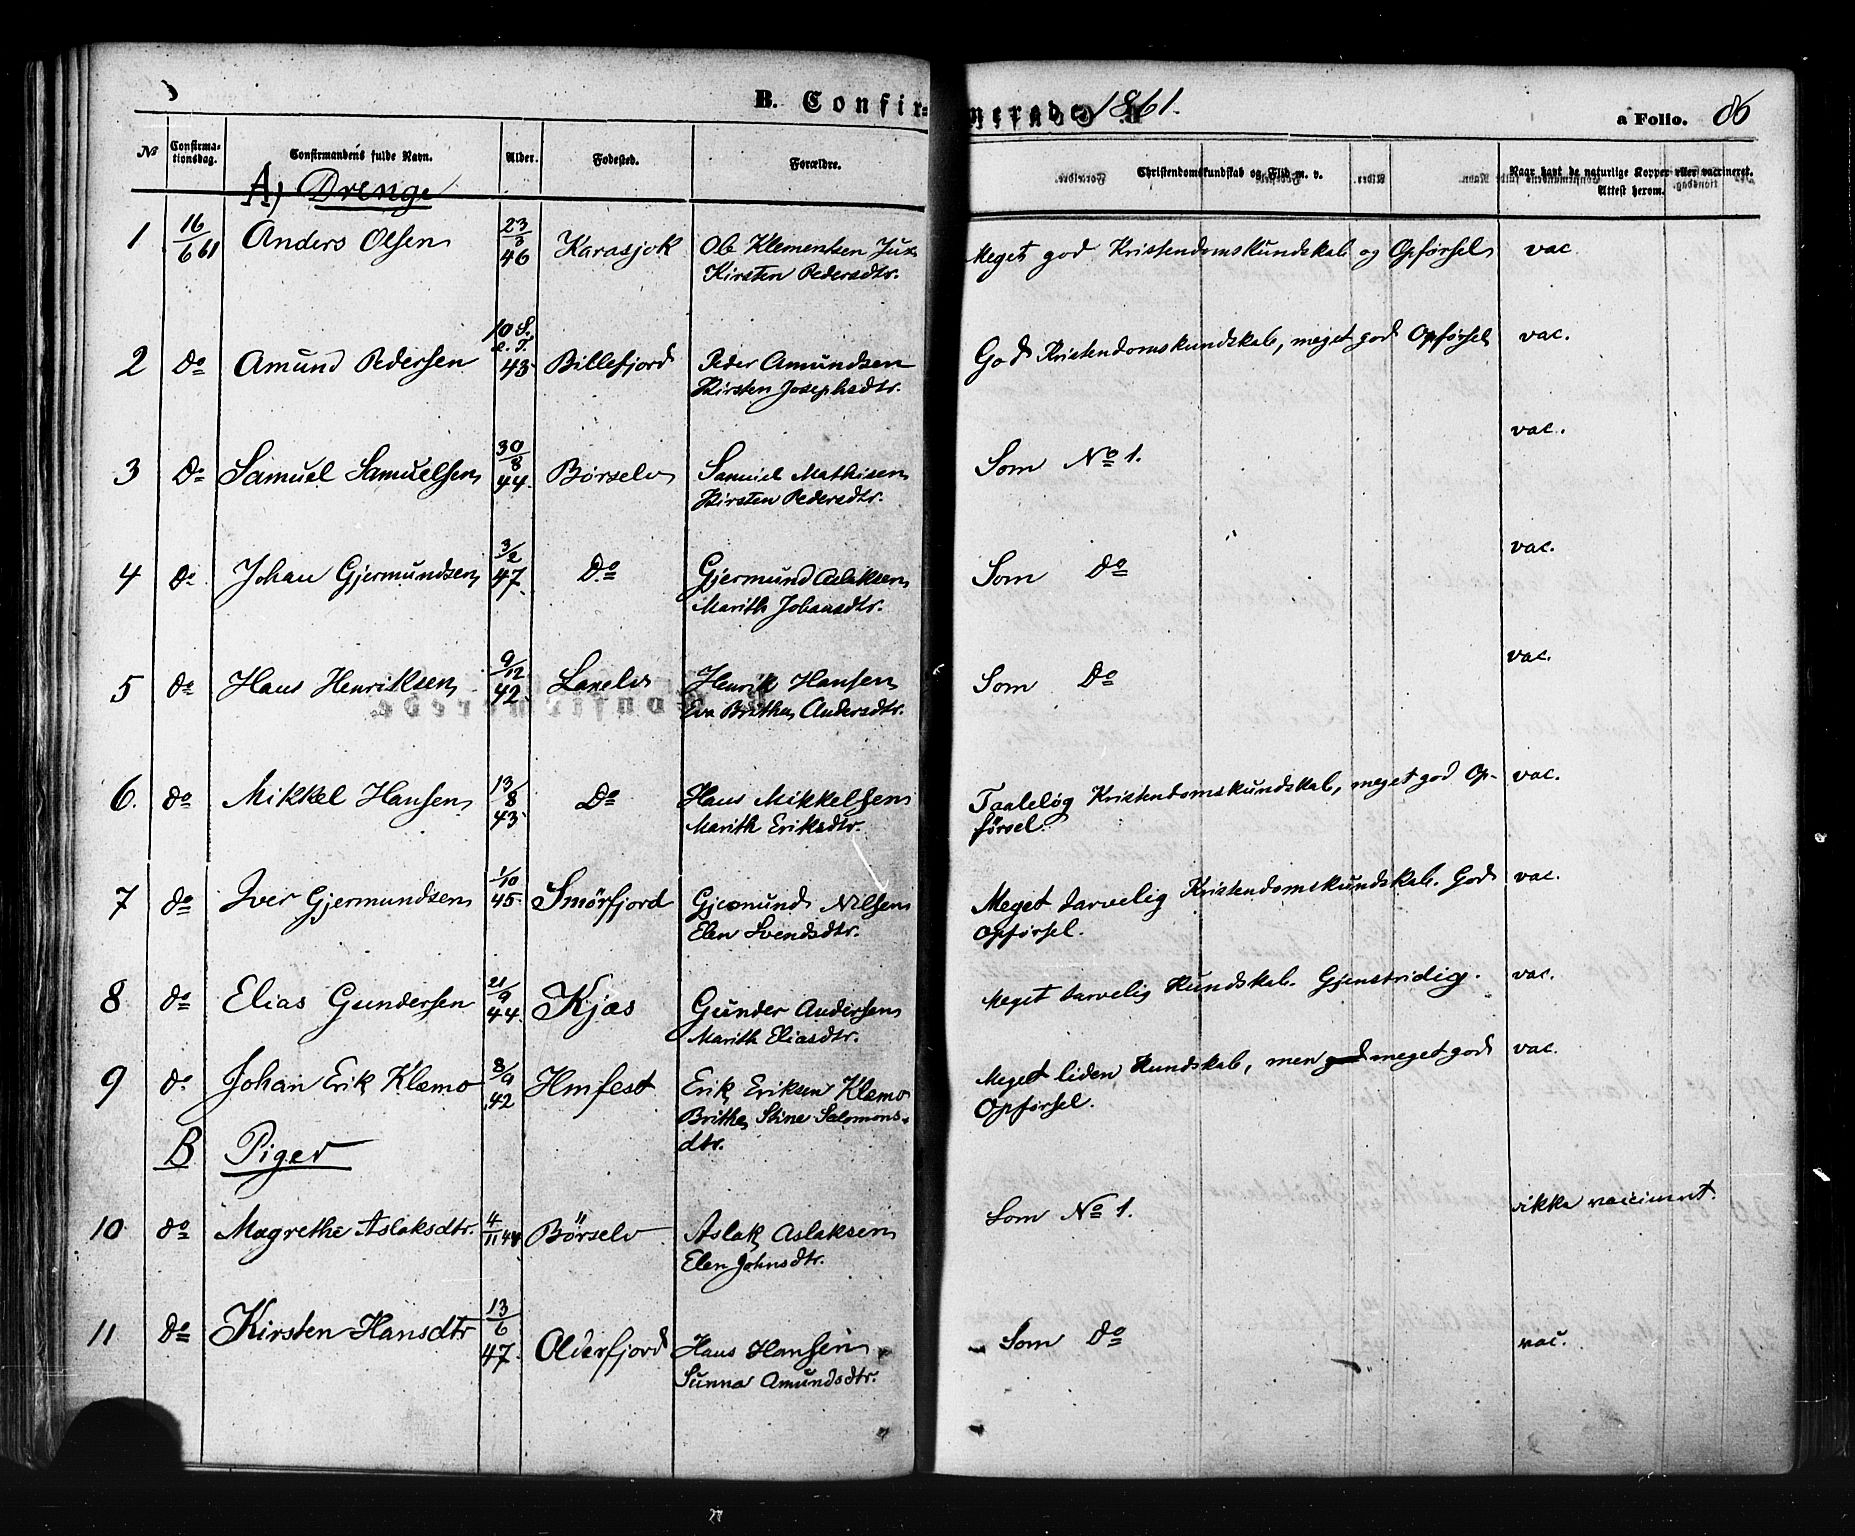 B. Confirmerede 1861. a Folio. 86
No Confirmationsdag. Confirmandens fulde Navn. Alder. Fødested. Forældre. Christendomskundskab og Flid m. v. Naar havt de naturlige Kopper eller vaccineret. Attest herom.
A) Drenge
1 16/6 61 Anders Olsen 23/3 46 Karasjok Ole Klementsen Meget god Kristendomskundskab og Opførsel vac.
Kirsten Pedersdtr.
2 Do Amund Pedersen 10 S. e. T. 43 Billefjord Peder Amundsen God Kristendomskundskab, meget god Opførsel vac.
Kirsten Josephsdtr.
3 Do Samuel Samuelsen 30/8 44. Børselv Samuel Mathisen Som No 1. vac.
Kirsten Pedersdtr.
4 do. Johan Gjermundsen 3/2 47. Do Gjermund Aslaksen Som Do vac.
Marith Johansdtr.
5 do Hans Henriksen 9/12 42. Laxelv Henrik Hansen Som Do vac.
Eva Brithe Andersdtr.
6. do Mikkel Hansen 13/8 43. Do Hans Mikkelsen Taalelig Kristendomskundskab, meget god Op-
Marith Eriksdtr. førsel. vac.
7 do Iver Gjermundsen 1/10 45. Smörfjord Gjermund Nilsen Meget tarvelig Kristendomskundskab. God vac.
Elen Svendsdtr. Opførsel.
8 do Elias Gundersen 21/9 44. Kjæs Gunder Andersen Meget tarvelig Kundskab. Gjenstridig. vac.
Marith Eliasdtr.
9 do Johan Erik Klemo 8/9 42 Hmfest Erik Eriksen Klemo Meget liden Kundskab, men meget god vac.
Brithe Stine Salomons- Opførsel.
dtr.
B Piger
10 do Magrethe Aslaksdtr. 4/11 44 Börselv Aslak Aslaksen Som No 1. ikke vaccineret.
Elen Johnsdtr.
11 do Kirsten Hansdtr 13/6 47. Olderfjord Hans Hansen Som Do vac.
Sunna Amundsdtr.